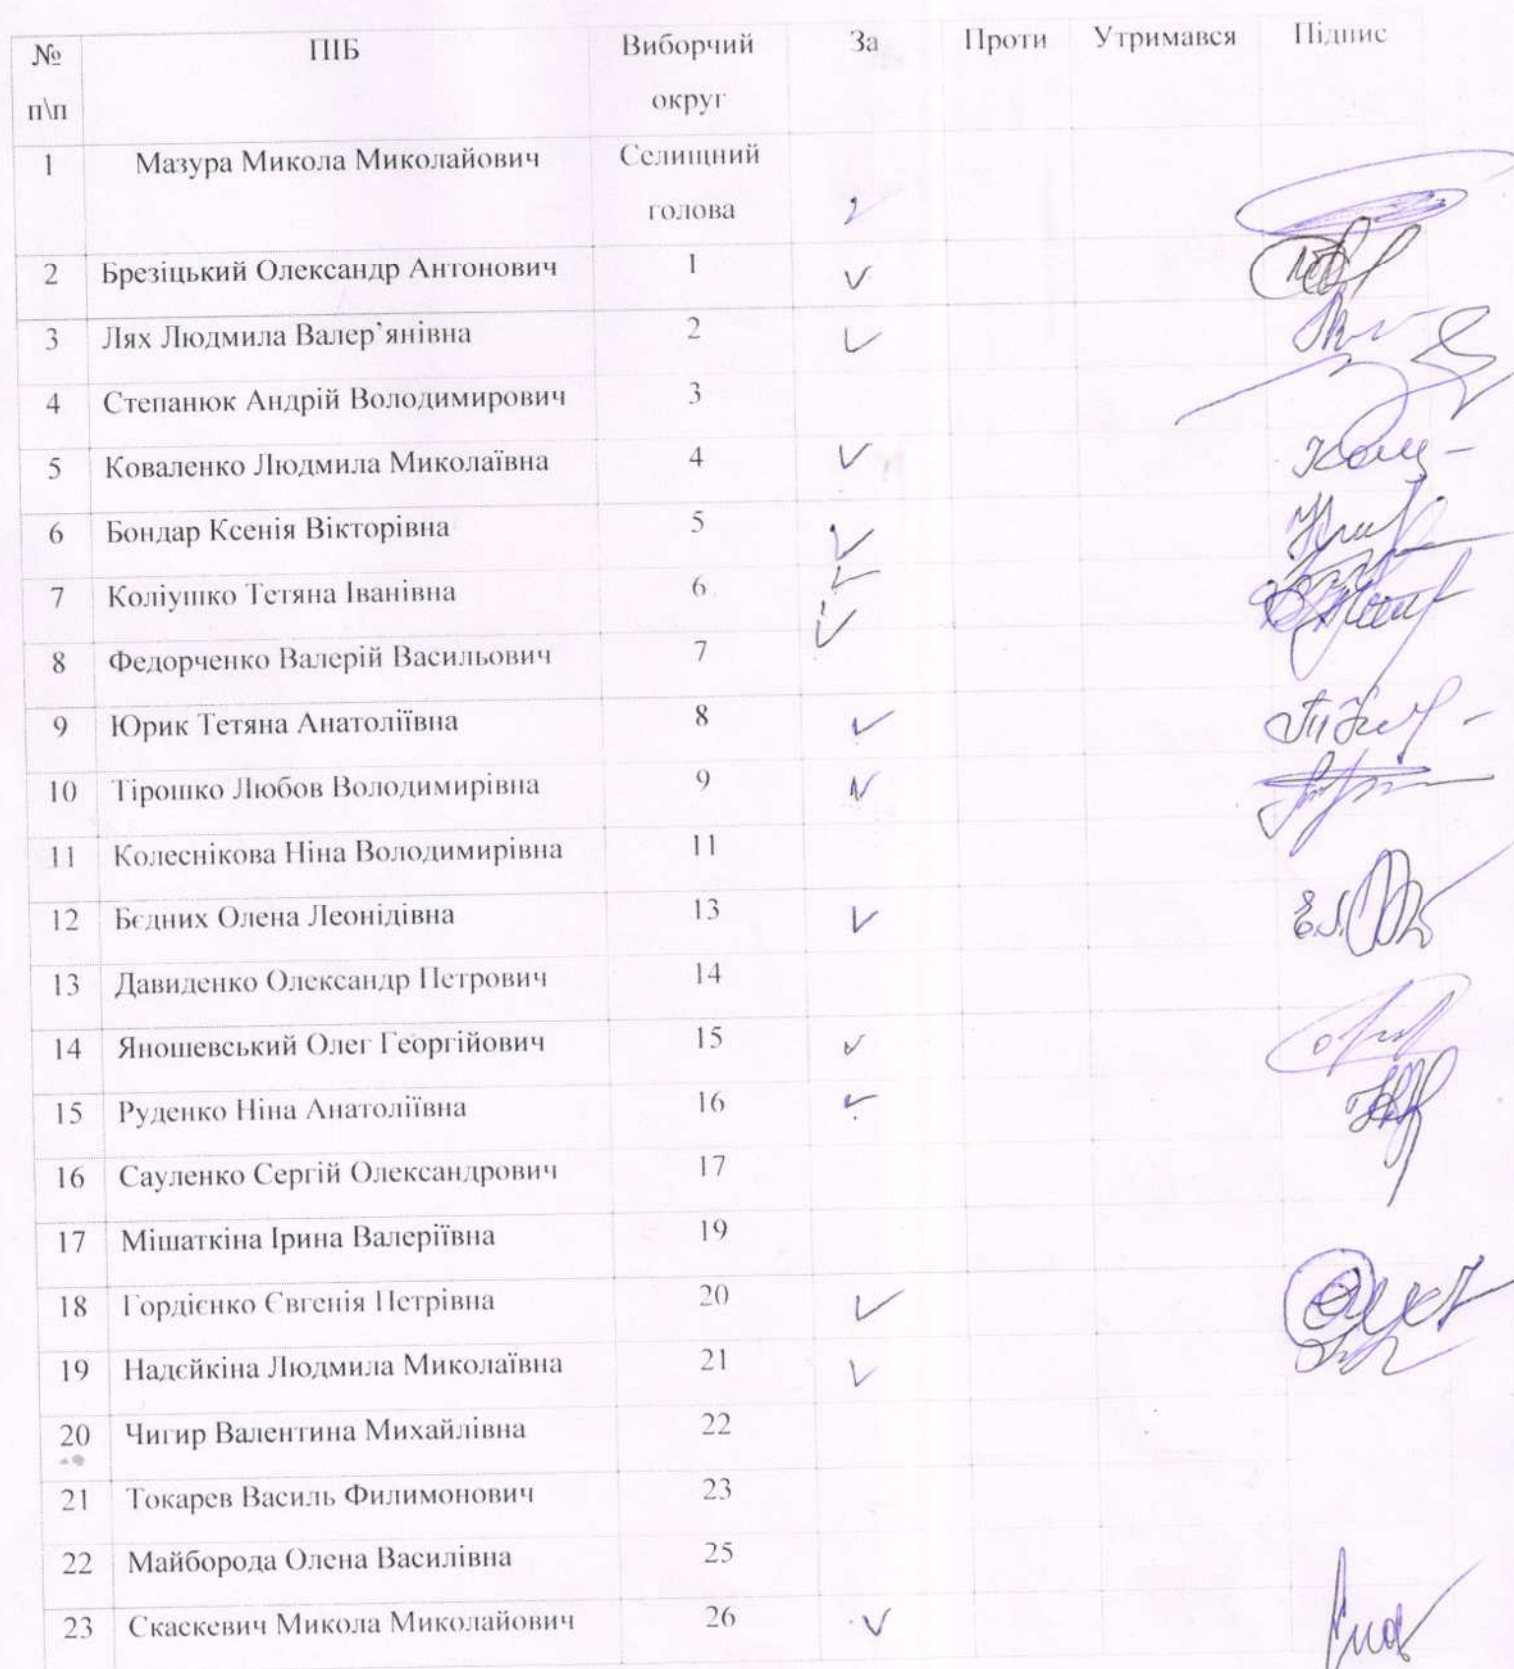 № п\п ПІБ Виборчий округ За Проти Утримався Підпис
1 Мазура Микола Миколайович Селищний голова
2 Брезіцький Олександр Антонович 1
3 Лях Людмила Валер’янівна 2
4 Степанюк Андрій Володимирович 3
5 Коваленко Людмила Миколаївна 4
6 Бондар Ксенія Вікторівна 5
7 Коліушко Тетяна Іванівна 6
8 Федорченко Валерій Васильович 7
9 Юрик Тетяна Анатоліївна 8
10 Тірошко Любов Володимирівна 9
11 Колеснікова Ніна Володимирівна 11
12 Бєдних Олена Леонідівна 13
13 Давиденко Олександр Петрович 14
14 Яношевський Олег Георгійович 15
15 Руденко Ніна Анатоліївна 16
16 Сауленко Сергій Олександрович 17
17 Мішаткіна Ірина Валеріївна 19
18 Гордієнко Євгенія Петрівна 20
19 Надєйкіна Людмила Миколаївна 21
20 Чигир Валентина Михайлівна 22
21 Токарев Василь Филимонович 23
22 Майборода Олена Василівна 25
23 Скаскевич Микола Миколайович 26